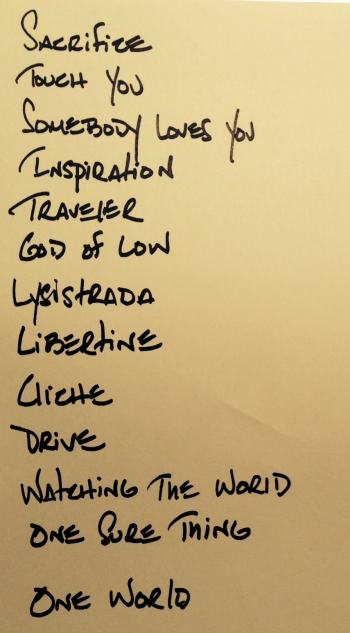 Sacrifize
Touch You
Somebody Loves You
Inspiration
Traveler
God of Low
Lysistrada
Libertine
Cliche
Drive
Watching The World
One Sure Thing
One World